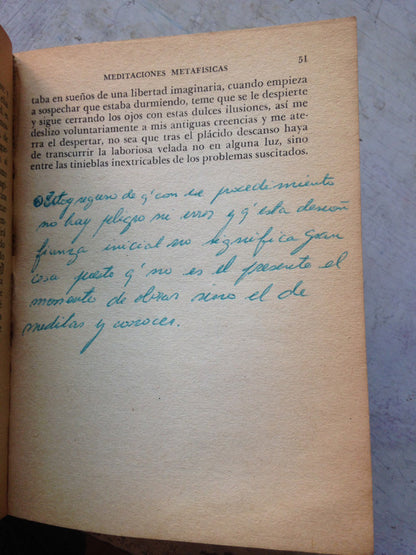 MEDITACIONES METAFISICAS 51
taba en sueños de una libertad imaginaria, cuando empieza
a sospechar que estaba durmiendo, teme que se le despierte
y sigue cerrando los ojos con estas dulces ilusiones, así me
deslizo voluntariamente a mis antiguas creencias y me ate-
rra el despertar, no sea que tras el plácido descanso haya
de transcurrir la laboriosa velada no en alguna luz, sino
entre las tinieblas inextricables de los problemas suscitados.
Estoy seguro de q' con ese procedimiento
no hay peligro ni error y q' esta descon
fianza inicial no significa gran
cosa puesto q' no es el presente el
momento de obrar sino el de
meditar y conocer.